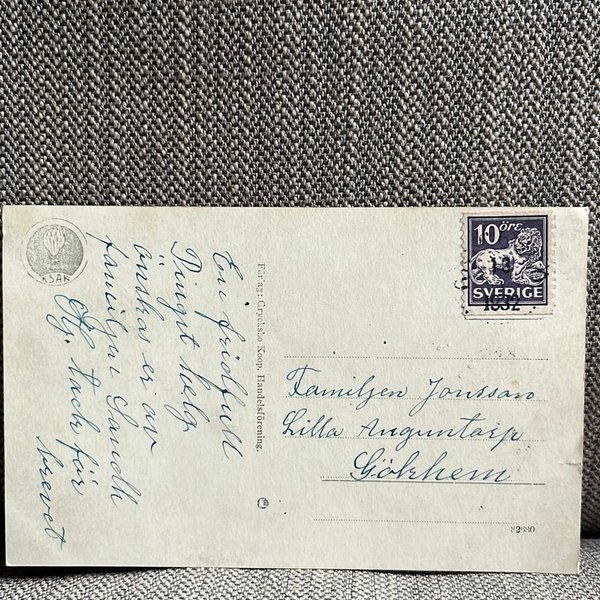 KSAK
En fridfull
Pingst helg
önskas er av
familjen Sandh
Hj. tack för
brevet
Förlag: Grycksbo Koop. Handelsförening.
10 ÖRE
SVERIGE
1932
Familjen Jonsson
Lilla Auguntorp
Gökhem